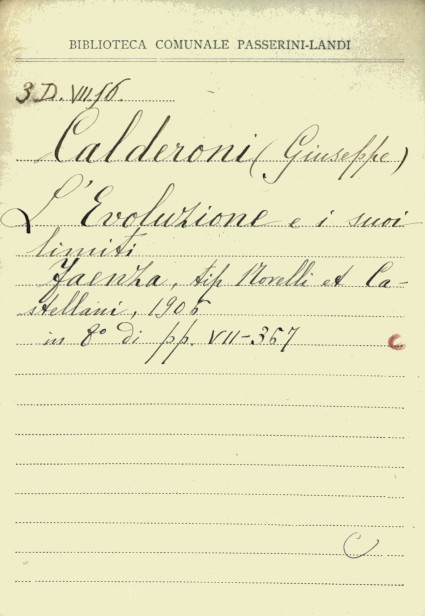 BIBLIOTECA COMUNALE PASSERINI-LANDI
3 D. VII. 56.
Calderoni (Giuseppe)
L'Evoluzione e i suoi
limiti
Faenza, tip Novelli et Ca-
stellani, 1906
in 8° di pp. VII-367